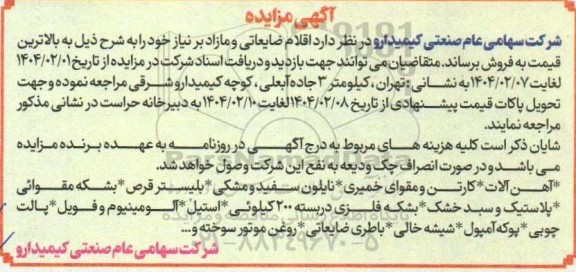 آگهی مزایده
شرکت سهامی عام صنعتی کیمیدارو در نظر دارد اقلام ضایعاتی و مازاد بر نیاز خود را به شرح ذیل به بالاترین
قیمت به فروش برساند. متقاضیان می توانند جهت بازدید و دریافت اسناد شرکت در مزایده از تاریخ ۱۴۰۴/۰۲/۰۱
لغایت ۱۴۰۴/۰۲/۰۷ به نشانی: تهران، کیلومتر ۳ جاده آبعلی، کوچه کیمیدارو شرقی مراجعه نموده و جهت
تحویل پاکات قیمت پیشنهادی از تاریخ ۱۴۰۴/۰۲/۰۸ لغایت ۱۴۰۴/۰۲/۱۰ به دبیرخانه حراست در نشانی مذکور
مراجعه نمایند.
شایان ذکر است کلیه هزینه های مربوط به درج آگهی در روزنامه به عهده برنده مزایده
می باشد و در صورت انصراف چک ودیعه به نفع این شرکت وصول خواهد شد.
*آهن آلات *کارتن و مقوای خمیری *نایلون سفید و مشکی *بلیستر قرص *بشکه مقوائی
*پلاستیک و سبد خشک *بشکه فلزی دربسته ۲۰۰ کیلوئی *استیل *آلومینیوم و فویل *پالت
چوبی *پوکه آمپول *شیشه خالی *باطری ضایعاتی *روغن موتور سوخته و...
شرکت سهامی عام صنعتی کیمیدارو
۰۲۱-۸۸۳۴۹۶۷۰-۵